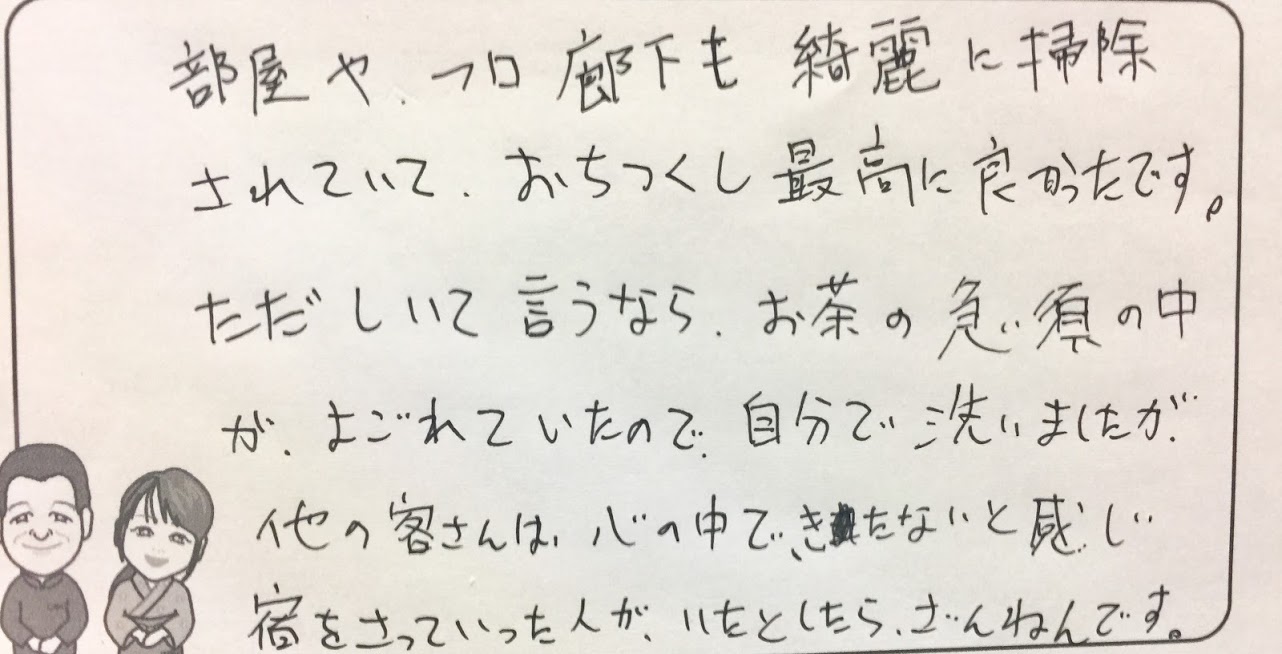 部屋や、フロ廊下も綺麗に掃除
されていて、おちつくし最高に良かったです。
ただしいて言うなら、お茶の急い須の中
が、よごれていたので、自分で洗いましたが、
他の客さんは、心の中で、きたないと感じ
宿をさっていった人が、いたとしたら、ざんねんです。